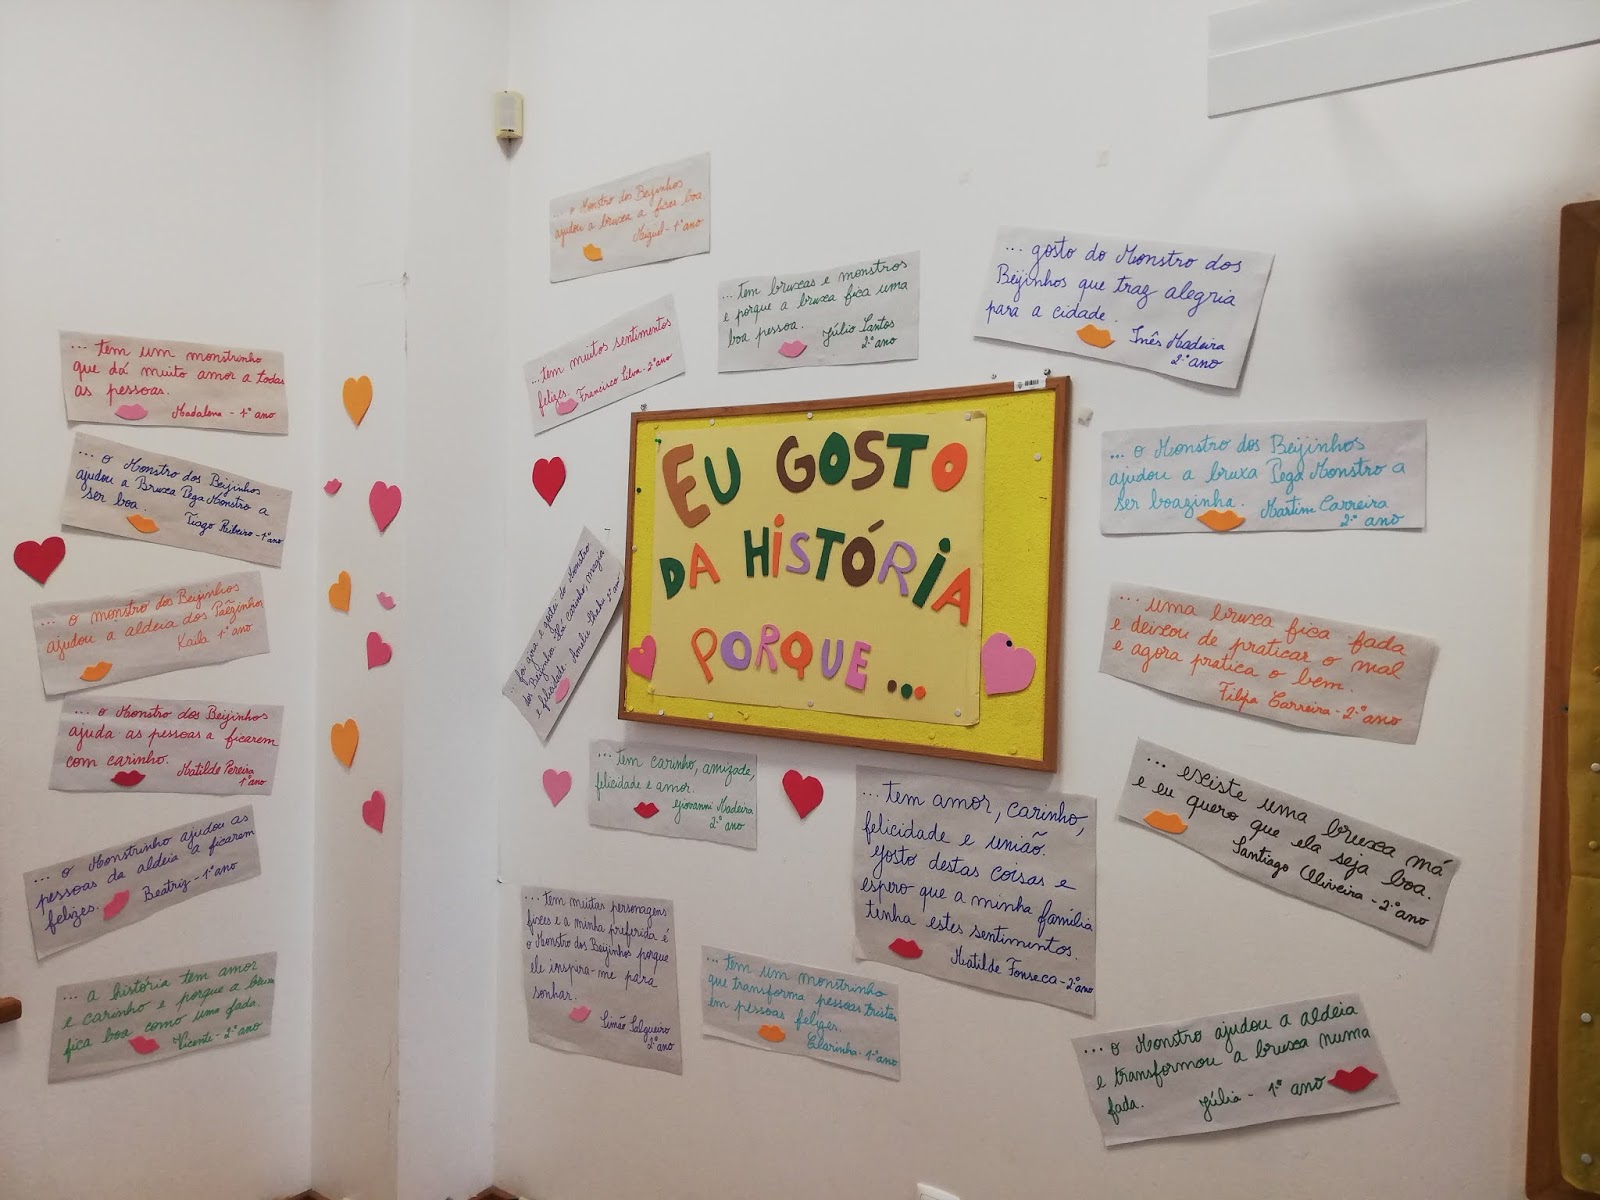 EU GOSTO
DA HISTÓRIA
PORQUE...
... tem um monstrinho
que dá muito amor a todas
as pessoas.
Madalena - 1º ano
... o Monstro dos Beijinhos
ajudou a Bruxa Pega Monstro a
ser boa.
Tiago Ribeiro - 1º ano
... o monstro dos Beijinhos
ajudou a aldeia dos Paezinhos
Kaila 1º ano
... o Monstro dos Beijinhos
ajuda as pessoas a ficarem
com carinho.
Matilde Pereira
1º ano
... o Monstrinho ajudou as
pessoas da aldeia a ficarem
felizes.
Beatriz - 1º ano
... a história tem amor
e carinho e porque a bruxa
fica boa como uma fada.
Vicente - 2º ano
... o Monstro dos Beijinhos
ajudou a bruxa a ficar boa
Miguel - 1º ano
... tem muitos sentimentos
felizes. Francisco Silva - 2º ano
... tem bruxas e monstros
e porque a bruxa fica uma
boa pessoa.
Júlio Santos
2º ano
... gosto do Monstro dos
Beijinhos que traz alegria
para a cidade.
Inês Madeira
2º ano
... foi gira e gostei do Monstro
dos Beijinhos. Há carinho, magia
e felicidade. Amelie 2º ano
... tem carinho, amizade,
felicidade e amor.
Giovanni Madeira
2º ano
... tem muitas personagens
fixes e a minha preferida é
o Monstro dos Beijinhos porque
ele inspira-me para
sonhar.
Simão Salgueiro
2º ano
... tem um monstrinho
que transforma pessoas tristes
em pessoas felizes.
Clarinha - 1º ano
... tem amor, carinho,
felicidade e união.
Gosto destas coisas e
espero que a minha família
tenha estes sentimentos.
Matilde Fonseca - 2º ano
... o Monstro dos Beijinhos
ajudou a bruxa Pega Monstro a
ser boazinha.
Martim Carreira
2º ano
... uma bruxa fica fada
e deixou de praticar o mal
e agora pratica o bem.
Filipa Carreira - 2º ano
... existe uma bruxa má
e eu quero que ela seja boa.
Santiago Oliveira - 2º ano
... o Monstro ajudou a aldeia
e transformou a bruxa numa
fada.
Júlia - 1º ano